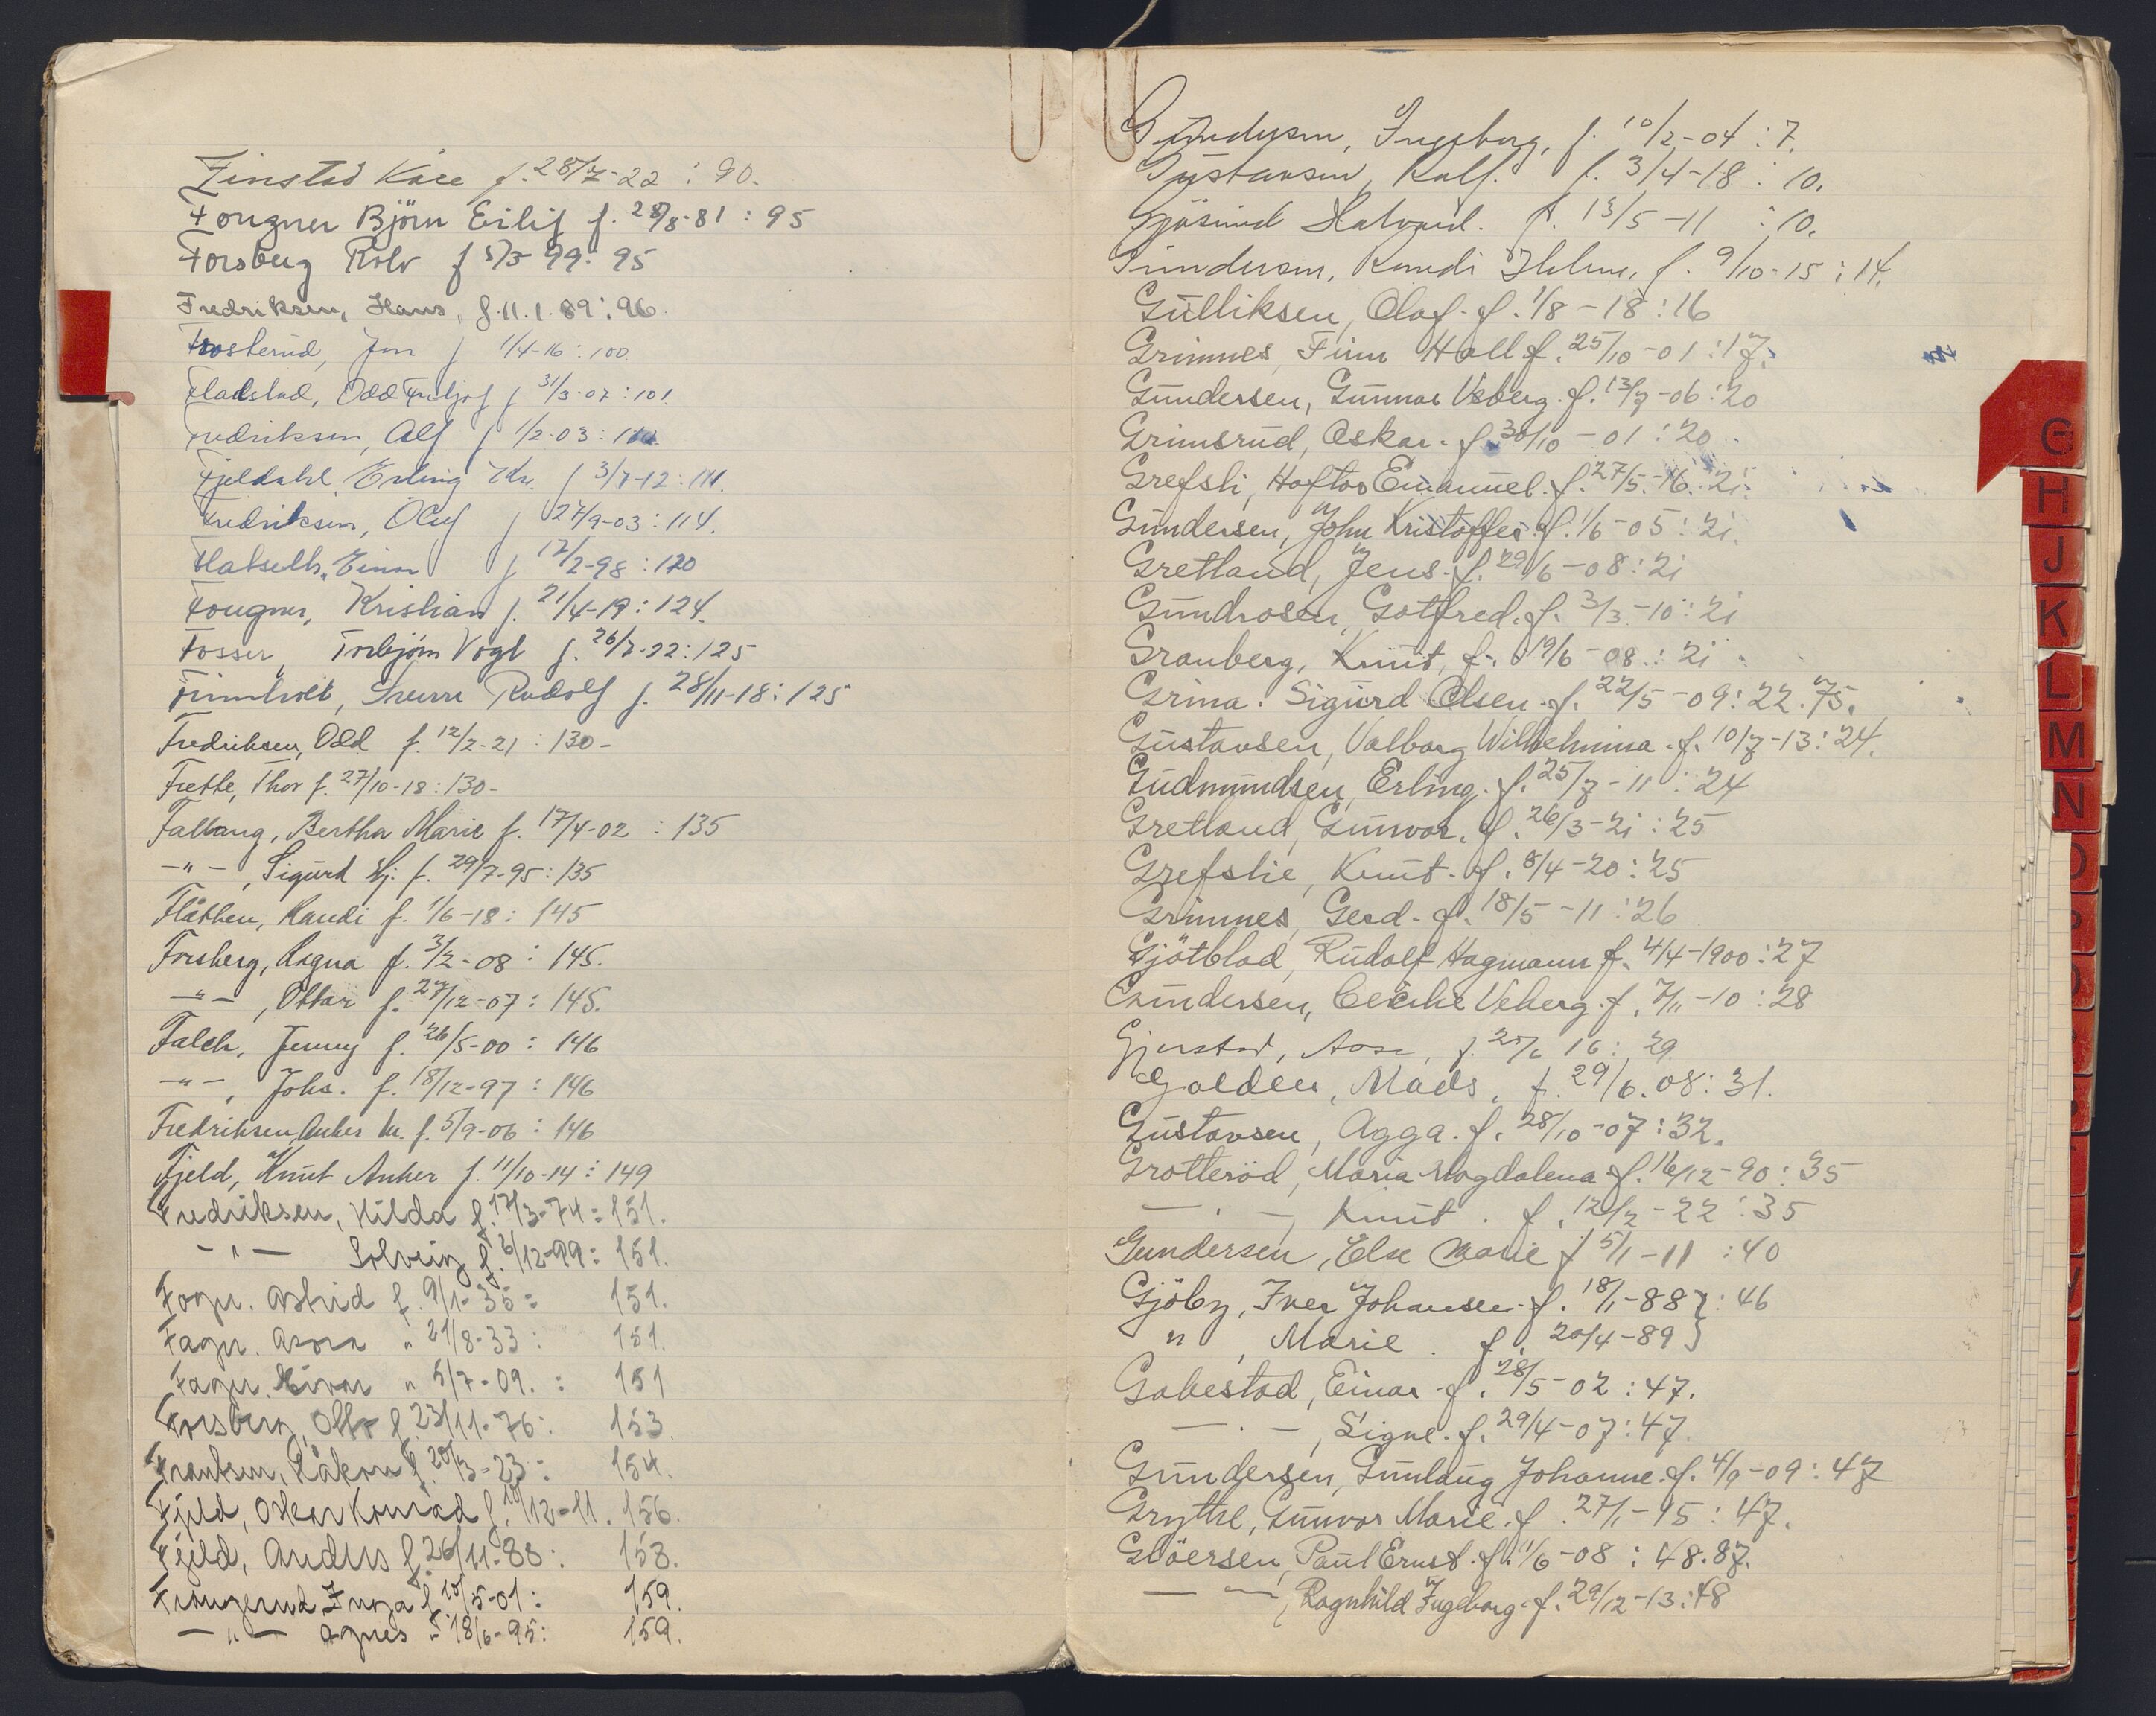 Finstad Kåre f. 28/7-22 : 90.
Fougner Björn Eilif f. 28/8-81 : 95
Forsberg Rolv f 5/3-99: 95
Fredriksen, Hans, f. 11.1.89 : 96.
Frosterud, Jon f 1/4-16 : 100.
Fladstad, Odd Fritjof f 31/3-07 : 101.
Fredriksen, Alf f 1/2-03 :
Fjeldahl, Erling f 3/7-12 : 111.
Fredriksen, Oluf f 27/9-03 : 114.
Einar f 17/2-98 : 120
Fougner, Kristian f. 21/4-19 : 124.
Fosser, Torbjørn Vogt f. 26/7-22 : 125
Sverre Rudolf f. 28/11-18 : 125
Fredriksen, Odd f. 12/2-21 : 130-
Frette, Thor f. 27/10-18 : 130-
Fallang, Bertha Marie f. 17/4-02 : 135
-"-, Sigurd Hj. f. 29/7-95 : 135
Flåthen, Randi f. 1/6-18 : 145
Forsberg, Ragna f. 3/2-08 : 145.
-"-, Ottar f. 27/12-07 : 145.
Falch, Jenny f. 26/5-00 : 146
-"-, Johs. f. 18/12-97 : 146
Fredriksen, Anker M. f. 5/9-06 : 146
Fjeld, Knut Anker f. 11/10-14 : 149
Fredriksen, Hilda f. 17/3-74 = 151.
-"- Solveig f. 6/12-99 = 151.
Astrid f. 9/1-35 = 151.
" 21/8-33 : 151.
Einar " 5/7-09. : 151
Forsberg, Otto f. 23/11-76 : 153.
Frantsen, Håkon f. 20/3-23 : 154.
Fjeld, Oskar Konrad f. 10/12-11. 156.
Fjeld, Anders f. 26/11-88 : 158.
Inga f. 10/5-01 : 159.
-"- Agnes " 18/6-95 : 159.
Gundersen, Ingeborg, f. 10/2-04 : 7.
Gustavsen, Rolf. f. 3/4-18 : 10.
Gjösund Halvard. f. 13/5-11 : 10.
Gundersen, Randi f. 9/10-15 : 14.
Gulliksen, Olaf. f. 1/8-18 : 16
Grimnes, Finn Hall f. 25/10-01 : 17.
Gundersen, Gunnar Veberg. f. 13/7-06 : 20
Grimsrud, Oskar. f. 30/10-01 : 20.
Grefsli, Haftor Emanuel. f. 27/5-16. : 21.
Gundersen, John Kristoffer. f. 1/6-05 : 21.
Gretland, Jens. f. 29/6-08 : 21
Gundrosen, Gotfred. f. 3/3-10 : 21
Granberg, Knut, f. 19/6-08 : 21
Grina. Sigurd Olsen. f. 22/5-09 : 22. 75.
Gustavsen, Valborg Wilhelmina. f. 10/7-13 : 24.
Gudmundsen, Erling. f. 25/7-11 : 24
Gretland, Gunvor. f. 26/3-21 : 25
Grefslie, Knut. f. 8/4-20 : 25
Grimnes, Gerd. f. 18/5-11 : 26
Gjötblad, Rudolf Hagmann f. 4/4-1900 : 27
Gundersen, Cecilie Veberg. f. 7/11-10 : 28
Gjerstad, Aase, f. 16 : 29.
Golden, Mads, f. 29/6.08 : 31.
Gustavsen, Agga. f. 28/10-07 : 32.
Grotteröd, Maria Magdalena f. 16/12-90 : 35
- . -, Knut. f. 12/2-22 : 35
Gundersen, Else Marie f 5/1-11 : 40
Gjöby, Iver Johansen. f. 18/1-88 } : 46
" , Marie. f. 20/4-89 }
Gabestad, Einar. f. 28/5-02 : 47.
- . -, Signe. f. 29/4-07 : 47.
Gundersen, Gunlaug Johanne. f. 4/9-09 : 47
Grythe, Gunvor Marie. f. 27/1-15 : 47.
Glöersen, Paul Ernst. f. 1/6-08 : 48. 87.
- " -, Ragnhild Ingeborg. f. 29/12-13 : 48
G
H
J
K
L
M
N